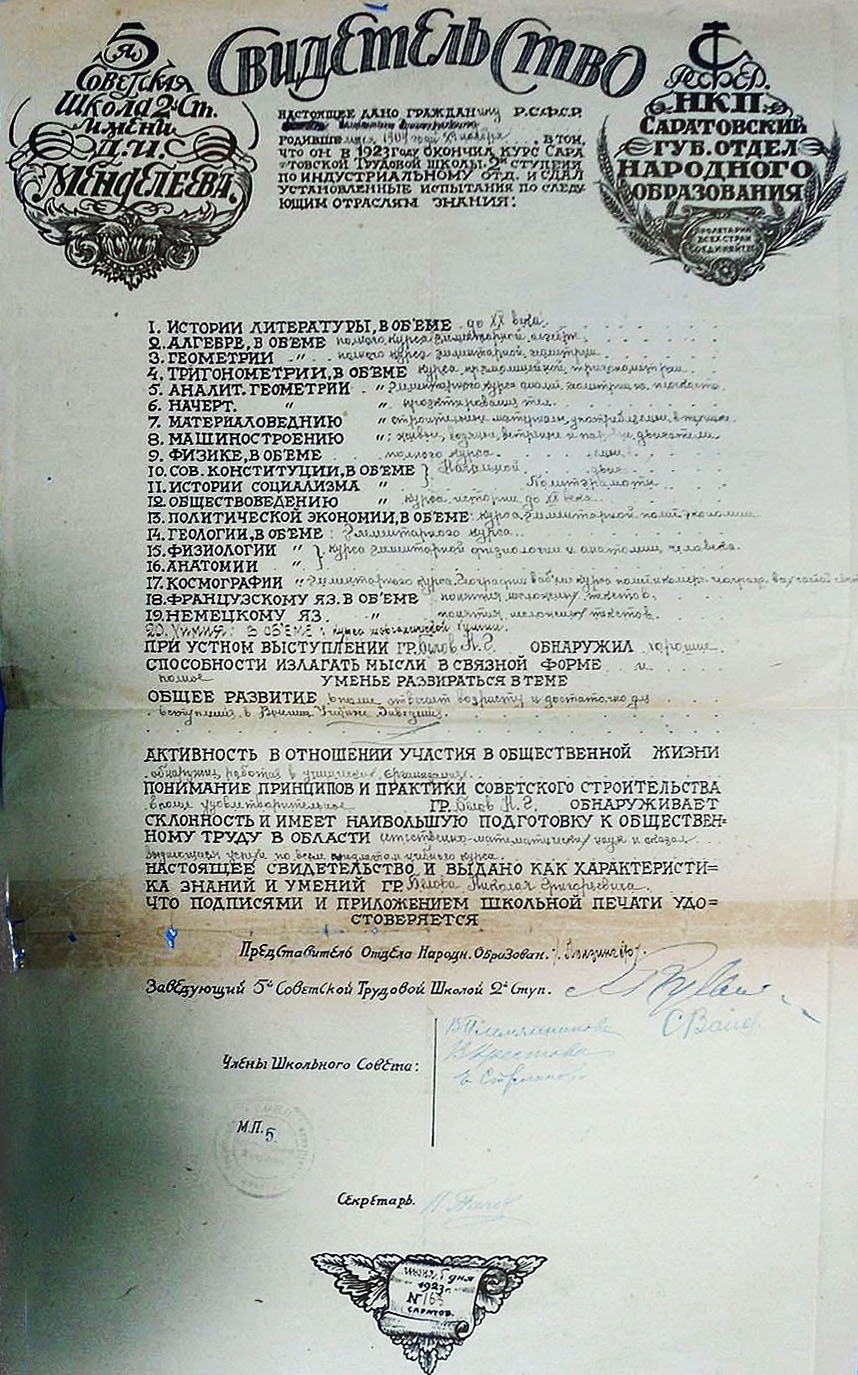 5я
Советская
Школа 2й Ст.
имени
Д.И.
Менделеева.
Свидетельство
Р.С.Ф.С.Р.
НКП
Саратовский
Губ. отдел
народного
образования
Пролетарии
всех стран
соединяйтесь
Настоящее дано гражданину Р.С.Ф.С.Р.
родившемуся 1904 года ноября, в том,
что он в 1923 году окончил курс Сара
товской Трудовой школы 2й ступени
по индустриальному отд. и сдал
установленные испытания по следу-
ющим отраслям знания:
1. Истории литературы, в об'еме до XX века.
2. Алгебре, в об'еме полного курса элементарной алгебр.
3. Геометрии -"- полного курса элементарной геометрии
4. Тригонометрии, в об'еме курса прямолинейной тригонометрии
5. Аналит. геометрии " элементарного курса аналит. геометрии на плоскости
6. Начерт. " " проэктирования тел.
7. Материаловеднию " строительные материалы, употребляемые в технике.
8. Машиностроению " : живые, водяные, ветряные и паровые двигатели
9. Физике, в об'еме полного курса
10. Сов. Конституции, в об'еме } Начальной
11. Истории социализма " } Политграмоты
12. Обществоведению " курса истории до XX века
13. Политической экономии, в об'еме: курса элементарной полит. экономии
14. Геологии, в об'еме: элементарного курса.
15. Физиологии " } курса элементарной физиологии и анатомии человека.
16. Анатомии " }
17. Космографии " элементарного курса. Географии в об'еме курса
18. Французскому яз. в об'еме понятия несложных текстов.
19. Немецкому яз. " понятия несложных текстов.
20. Химия: в об'еме: курса неорганической химии.
При устном выступлении гр. Белов Н.Г. обнаружил хорошие
способности излагать мысли в связной форме и
полное уменье разбираться в теме
Общее развитие вполне отвечает возрасту и достаточно для
вступления в Высшия Учебныя Заведения.
Активность в отношении участия в общественной жизни
обнаружил, работая в ученических организациях.
Понимание принципов и практики советского строительства
вполне удовлетворительное гр. Белов Н.Г. обнаруживает
склонность и имеет наибольшую подготовку к обществен=
ному труду в области естественно-математических наук и оказал
выдающиеся успехи по всем предметам учебного курса.
Настоящее свидетельство и выдано как характеристи=
ка знаний и умений гр. Белова Николая Григорьевича.
что подписями и приложением школьной печати удо=
стоверяется
Представитель Отдела Народн. Образован.
Заведующий 5й Советской Трудовой Школой 2й Ступ.
Члены Школьного Совета:
М.П. 5
Секретарь.
5 дня
1923 г.
№ 163
Саратов.